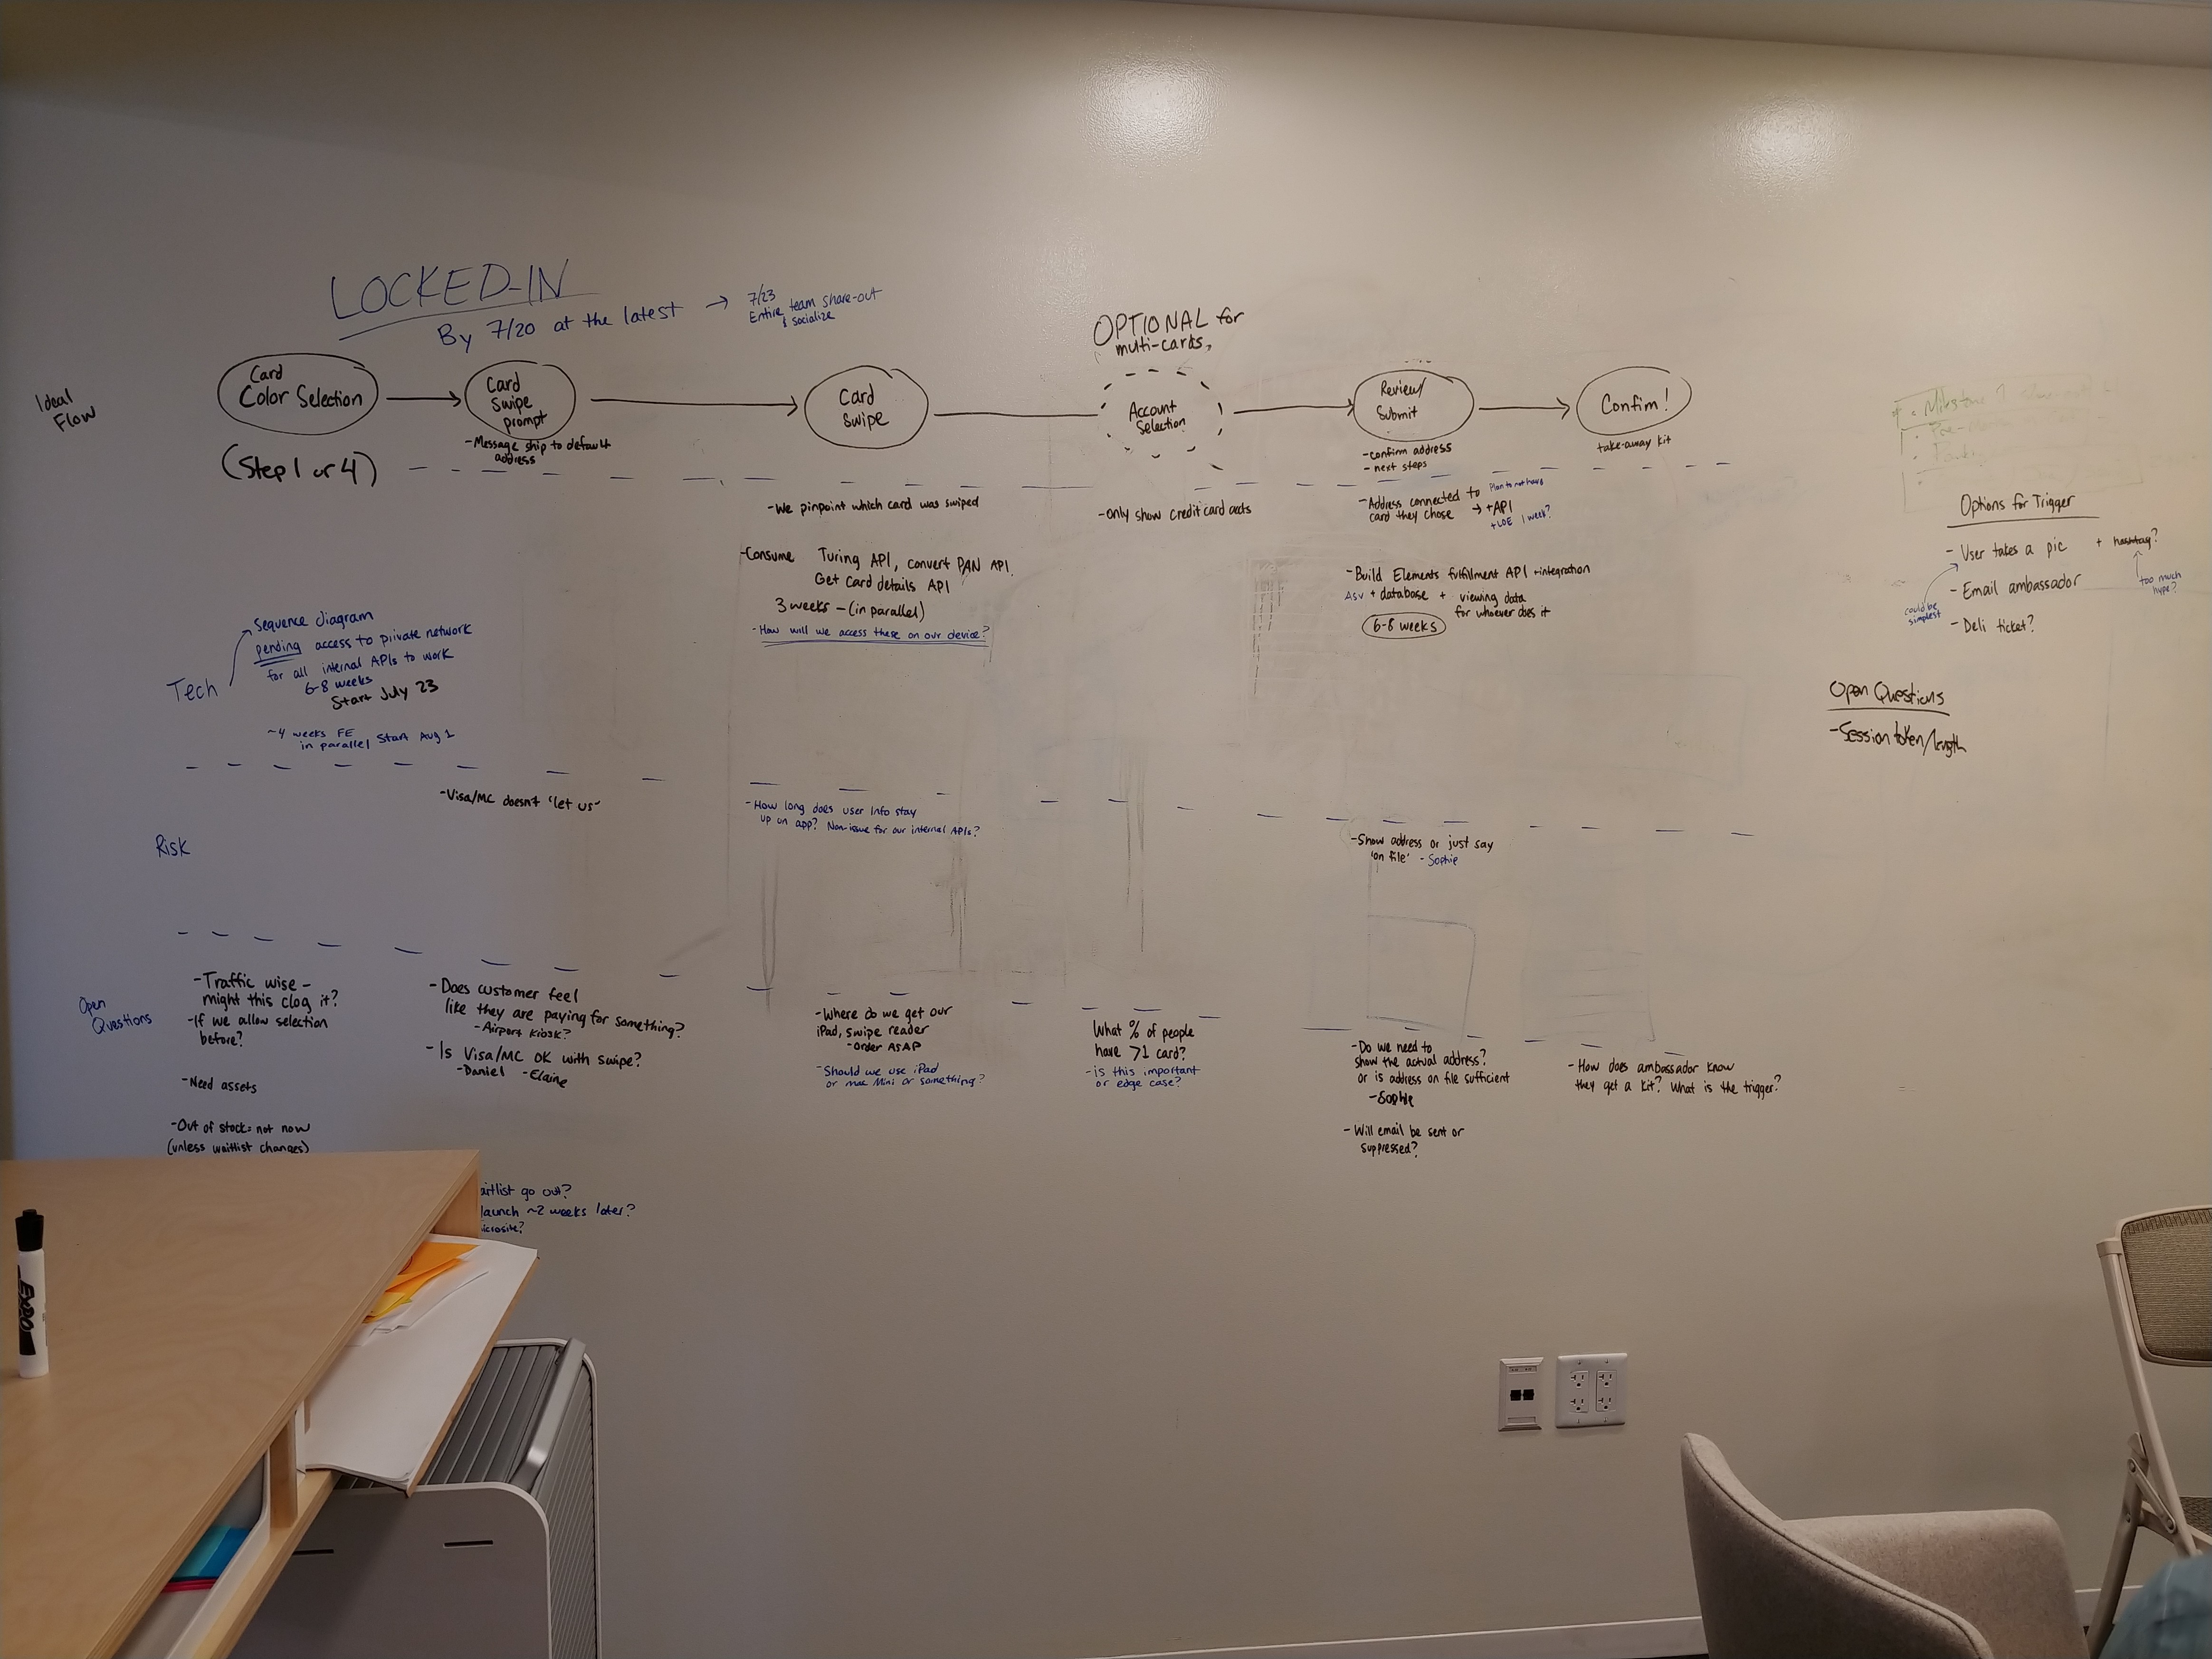 LOCKED-IN
By 7/20 at the latest → 7/23
Entire team share-out
& socialize
OPTIONAL for
multi-cards
Ideal
Flow
Card
Color Selection
(Step 1 or 4)
Card
Swipe
prompt
-Message ship to default
address
Card
Swipe
Account
Selection
Review/
Submit
-confirm address
-next steps
Confirm!
take-away kit
Tech
sequence diagram
pending access to private network
for all internal APIs to work
6-8 weeks
Start July 23
~4 weeks FE
in parallel Start Aug 1
-We pinpoint which card was swiped
-Consume Turing API, convert PAN API,
Get card details API
3 weeks - (in parallel)
-How will we access these on our device?
-Only show credit card accts
-Address connected to
card they chose → +API
Plan to not have
+LOE 1 week?
-Build Elements fulfillment API +integration
Asv + database + viewing data
for whoever does it
6-8 weeks
Options for Trigger
-User takes a pic + hashtag?
too much
hype?
-Email ambassador
could be
simplest
-Deli ticket?
Open Questions
-Session token/length
Risk
-Visa/MC doesn't 'let us'
-How long does user info stay
up on app? Non-issue for our internal APIs?
-Show address or just say
'on file' -Sophie
Open
Questions
-Traffic wise -
might this clog it?
-If we allow selection
before?
-Need assets
-Out of stock= not now
(unless waitlist changes)
aitlist go out?
launch ~2 weeks later?
icrosite?
-Does customer feel
like they are paying for something?
-Airport Kiosk?
-Is Visa/MC OK with swipe?
-Daniel -Elaine
-Where do we get our
iPad, swipe reader
-Order ASAP
-Should we use iPad
or mac Mini or something?
What % of people
have >1 card?
-is this important
or edge case?
-Do we need to
show the actual address?
or is address on file sufficient
-Sophie
-Will email be sent or
suppressed?
-How does ambassador know
they get a kit? What is the trigger?
EXPO